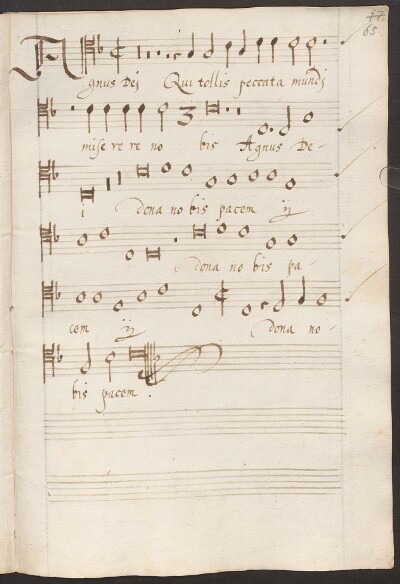 77.
65
Agnus Dei Qui tollis peccata mundi
miserere nobis Agnus De-
i dona nobis pacem ij
dona nobis pa-
cem ij dona no-
bis pacem.